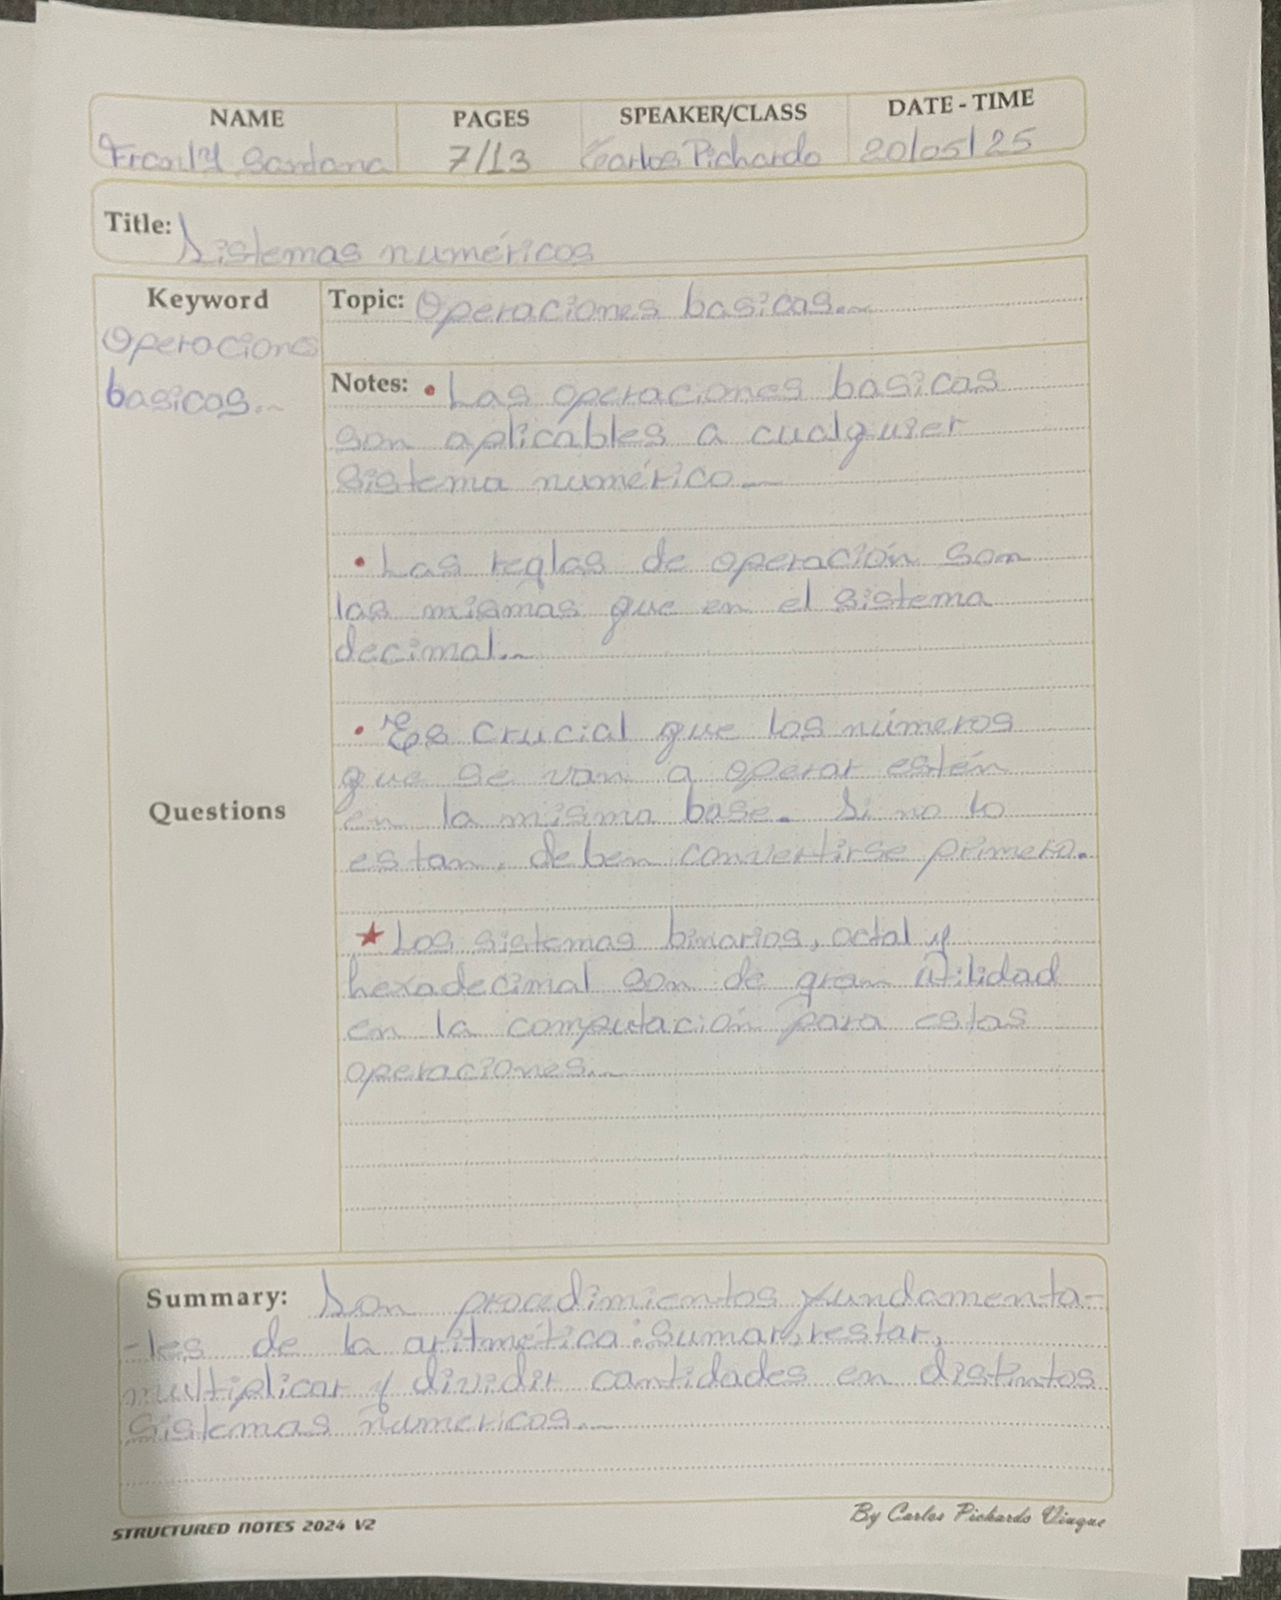 NAME PAGES SPEAKER/CLASS DATE - TIME
Franly Santana 7/13 Carlos Pichardo 20/05/25
Title: Sistemas numéricos
Keyword Topic: Operaciones basicas..
Operaciones
basicas..
Notes: • Las operaciones basicas
son aplicables a cualquier
sistema numérico..
• Las reglas de operación son
las mismas que en el sistema
decimal..
• Es crucial que los números
que se van a operar estén
Questions en la misma base. Si no lo
estan, deben convertirse primero.
★ Los sistemas binarios, octal y
hexadecimal son de gran utilidad
en la computación para estas
operaciones..
Summary: Son procedimientos fundamenta-
-les de la aritmética: sumar, restar,
multiplicar y dividir cantidades en distintos
sistemas numericos..
STRUCTURED NOTES 2024 V2 By Carlos Pichardo Viuque